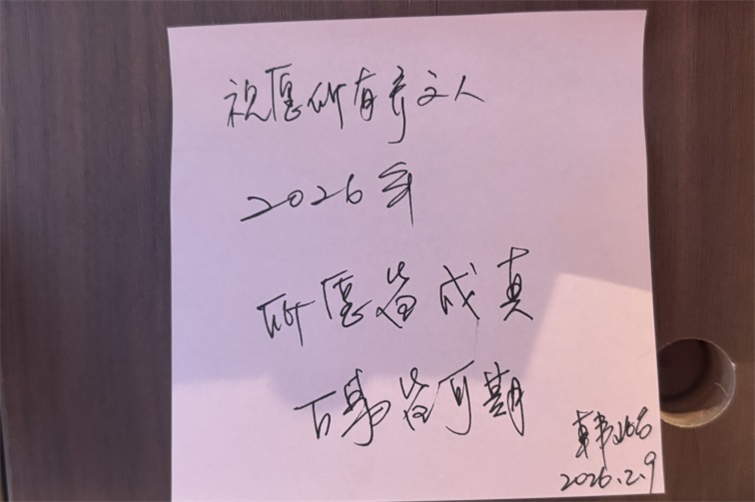 祝愿所有齐文人
2026年
所愿皆成真
万事皆可期
韩
2026.2.9